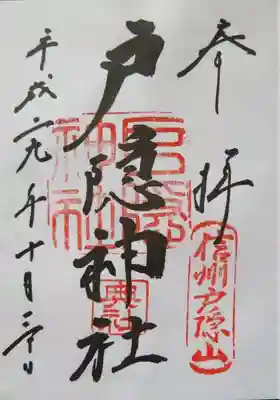 奉拝
信州戸隠山
戸隠神社
戸隠神社
奥社
平成二九年十月三十日